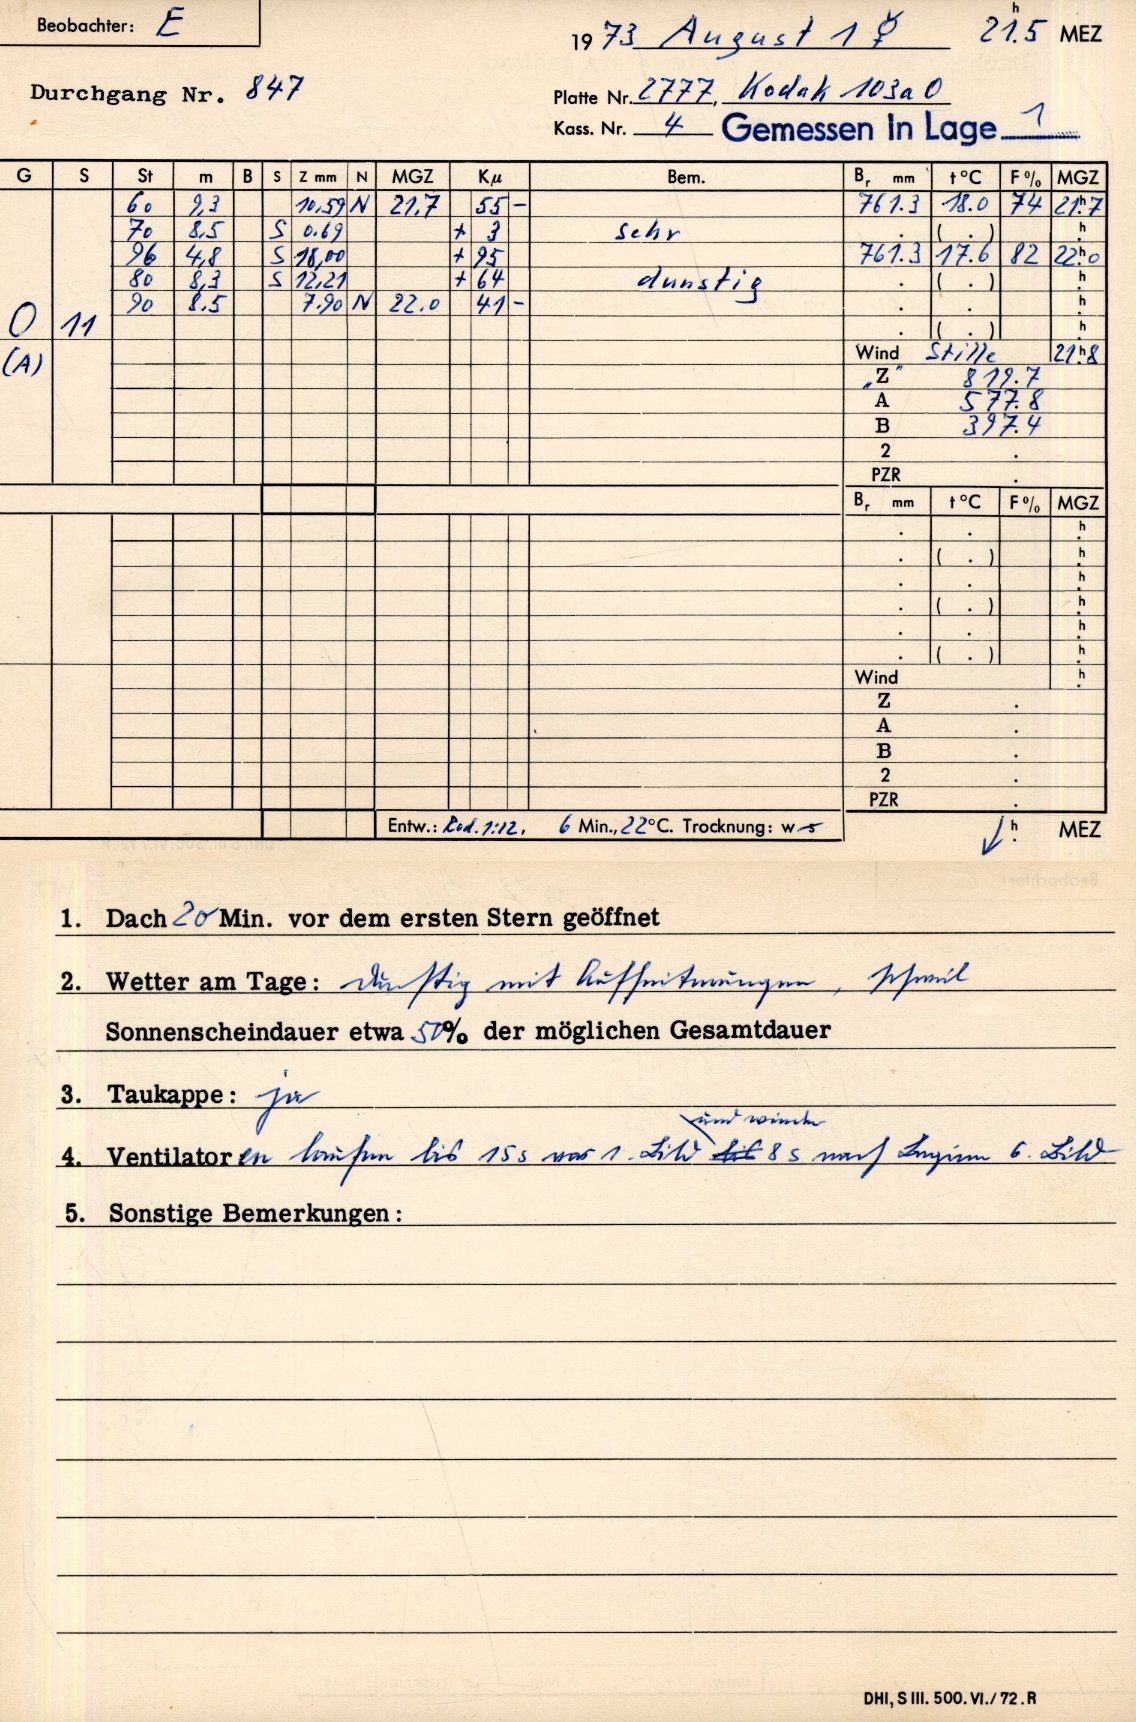 Beobachter: E
1973 August 1 ☿ 21.5 h MEZ
Durchgang Nr. 847
Platte Nr. 2777, Kodak 103a0
Kass. Nr. 4 Gemessen In Lage 1
G S St m B S Z mm N MGZ Kμ Bem. Br mm t °C F % MGZ
60 9,3 10,59 N 21,7 55 - 761.3 18.0 74 21.h7
70 8,5 S 0.69 + 3 sehr . ( . ) h
96 4,8 S 18,00 + 95 761.3 17.6 82 22.h0
80 8,3 S 12,21 + 64 dunstig . ( . ) h
90 8.5 7.90 N 22.0 41 - . . h
0 11 . ( . ) h
(A) Wind Stille 21.h8
"Z" 819.7
A 577.8
B 397.4
2 .
PZR .
Br mm t °C F % MGZ
. . h
. ( . ) h
. . h
. ( . ) h
. . h
. ( . ) h
Wind h
Z .
A .
B .
2 .
PZR .
Entw.: Rod. 1:12, 6 Min., 22°C. Trocknung: w s
h MEZ
1. Dach 20 Min. vor dem ersten Stern geöffnet
2. Wetter am Tage: dunstig mit Aufheiterungen, schwül
Sonnenscheindauer etwa 50% der möglichen Gesamtdauer
3. Taukappe: ja
und wieder
4. Ventilatoren laufen bis 15s vor 1. Bild bis 8s nach Beginn 6. Bild
5. Sonstige Bemerkungen:
DHI, S III. 500. VI./72. R